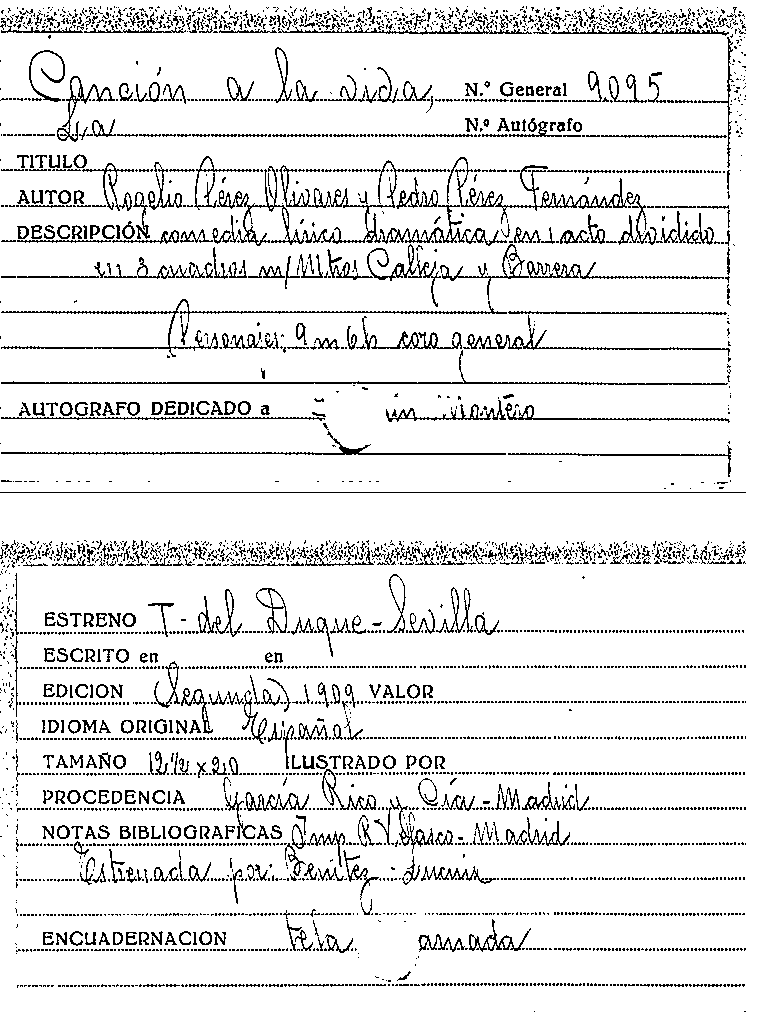 Canción a la vida, N.º General 9095
La N.º Autógrafo
TITULO
AUTOR Rogelio Pérez Olivares y Pedro Pérez Fernández
DESCRIPCIÓN comedia lírico dramática en 1 acto dividido
en 3 cuadros m/ Mtros Calleja y Barrera
Personajes: 9 m 6 h coro general
AUTOGRAFO DEDICADO a Montero
ESTRENO T- del Duque - Sevilla
ESCRITO en en
EDICION (Segunda) 1909 VALOR
IDIOMA ORIGINAL Español
TAMAÑO 12½ x 20 ILUSTRADO POR
PROCEDENCIA García Rico y Cía - Madrid
NOTAS BIBLIOGRAFICAS Imp R Velasco - Madrid
Estrenada por: Benítez -
ENCUADERNACION tela